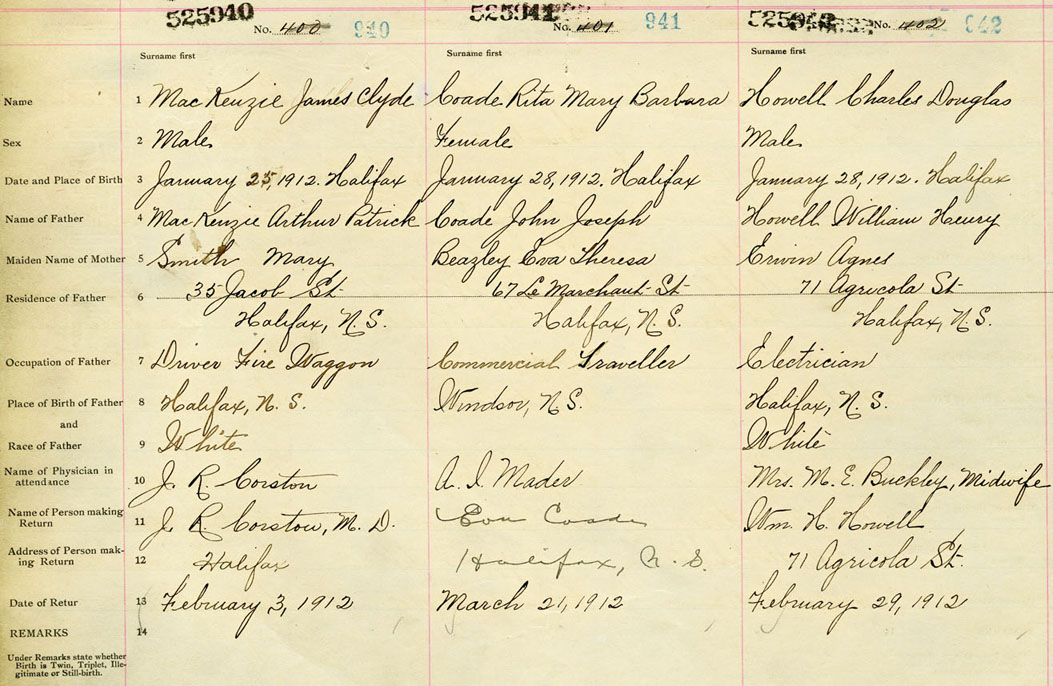 525940 525941
No. 400 940 No. 401 941 No. 402 942
Surname first Surname first Surname first
Name 1 MacKenzie James Clyde Coade Rita Mary Barbara Howell Charles Douglas
Sex 2 Male Female Male
Date and Place of Birth 3 January 25, 1912. Halifax January 28, 1912. Halifax January 28, 1912. Halifax
Name of Father 4 MacKenzie Arthur Patrick Coade John Joseph Howell William Henry
Maiden Name of Mother 5 Smith Mary Beazley Eva Theresa Erwin Agnes
Residence of Father 6 35 Jacob St 67 Le Marchant St 71 Agricola St
Halifax, N.S. Halifax, N.S. Halifax, N.S.
Occupation of Father 7 Driver Fire Waggon Commercial Traveller Electrician
Place of Birth of Father 8 Halifax, N.S. Windsor, N.S. Halifax, N.S.
and
Race of Father 9 White White
Name of Physician in attendance 10 J. R. Corston A. I. Mader Mrs. M. E. Buckley, Midwife
Name of Person making Return 11 J. R. Corston, M.D. Eva Coade Wm. H. Howell
Address of Person making Return 12 Halifax Halifax, N.S. 71 Agricola St.
Date of Retur 13 February 3, 1912 March 21, 1912 February 29, 1912
REMARKS 14
Under Remarks state whether
Birth is Twin, Triplet, Ille-
gitimate or Still-birth.